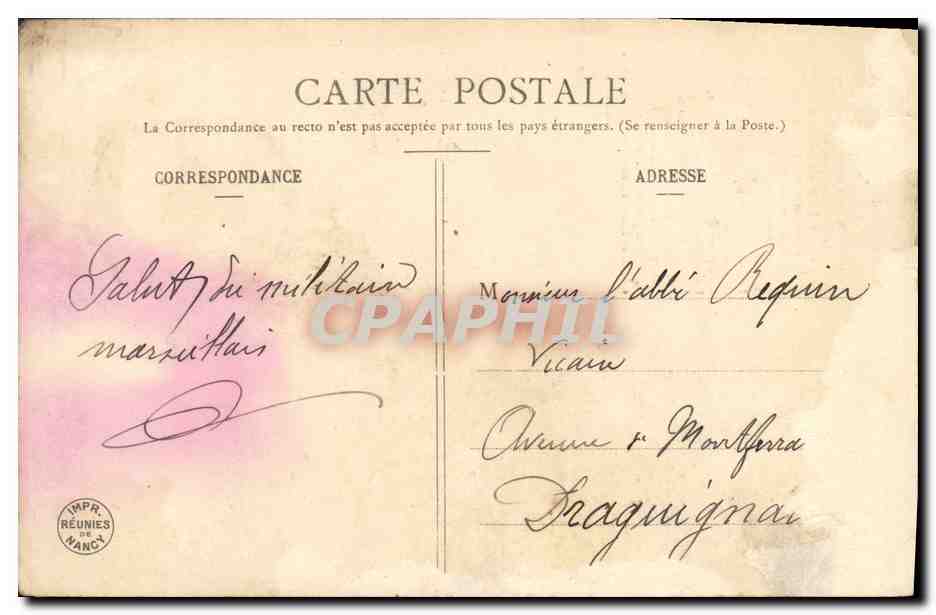 CARTE POSTALE
La Correspondance au recto n'est pas acceptée par tous les pays étrangers. (Se renseigner à la Poste.)
CORRESPONDANCE
Salut du militaire
marseillais
ADRESSE
Monsieur l'abbé Requin
Vicaire
Avenue de Montferra
Draguignan
CPAPHIL
IMPR.
RÉUNIES
DE
NANCY